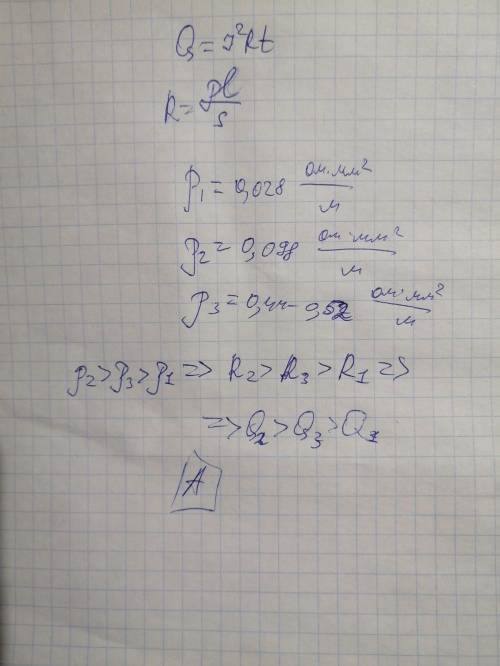 Q = I²Rt
R = ρl/s
ρ₁ = 0,028 ом·мм²/м
ρ₂ = 0,098 ом·мм²/м
ρ₃ = 0,44 - 0,52 ом·мм²/м
ρ₂ > ρ₃ > ρ₁ => R₂ > R₃ > R₁ =>
=> Q₂ > Q₃ > Q₁
А